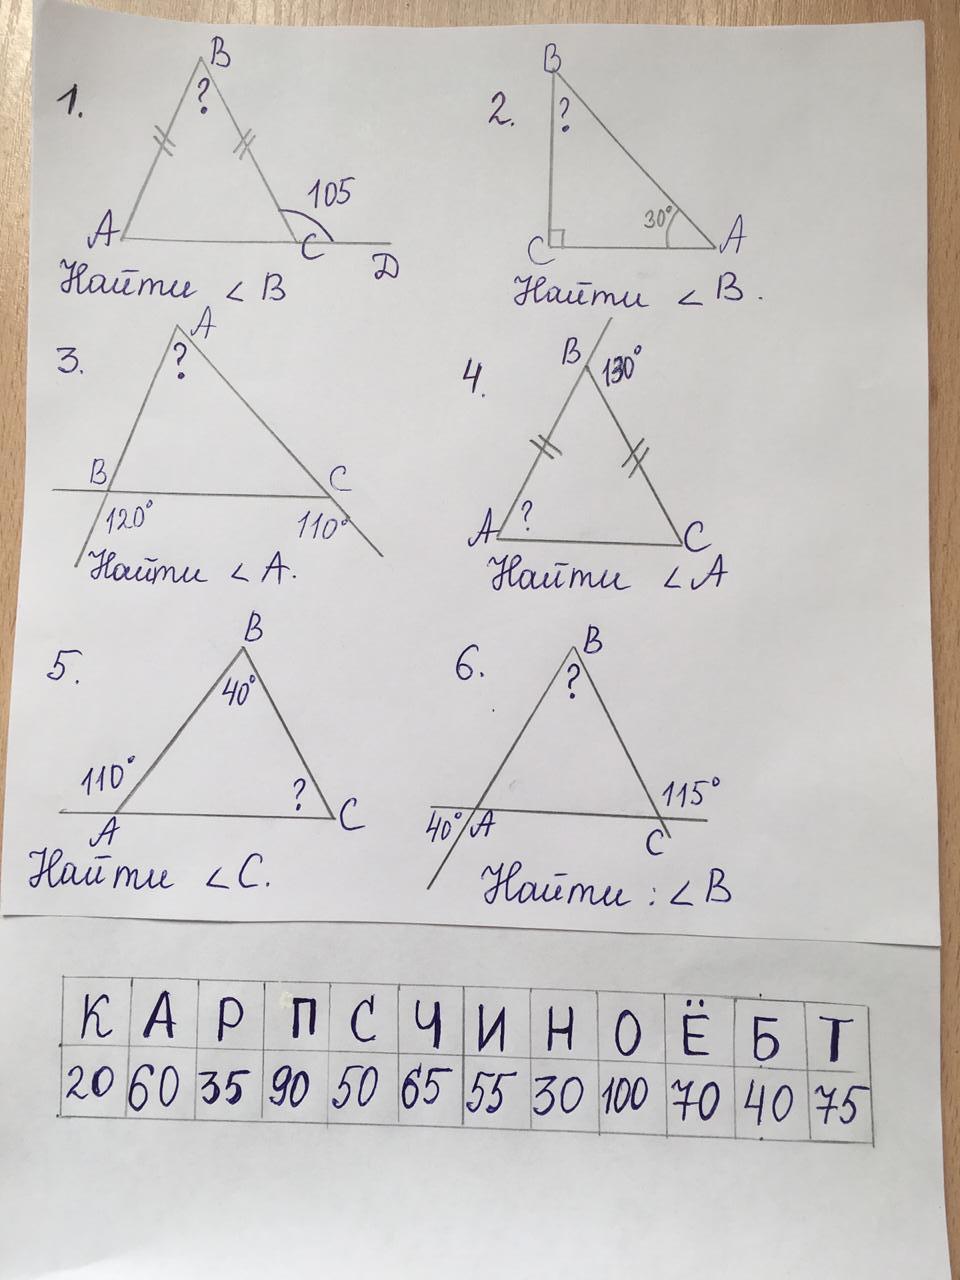 1.
B
?
105
A
C
D
Найти ∠B
2.
B
?
30°
C
A
Найти ∠B.
3.
A
?
B
C
120°
110°
Найти ∠A.
4.
B
130°
?
A
C
Найти ∠A
5.
B
40°
110°
?
A
C
Найти ∠C.
6.
B
?
115°
40°
A
C
Найти: ∠B
К А Р П С Ч И Н О Ё Б Т
20 60 35 90 50 65 55 30 100 70 40 75